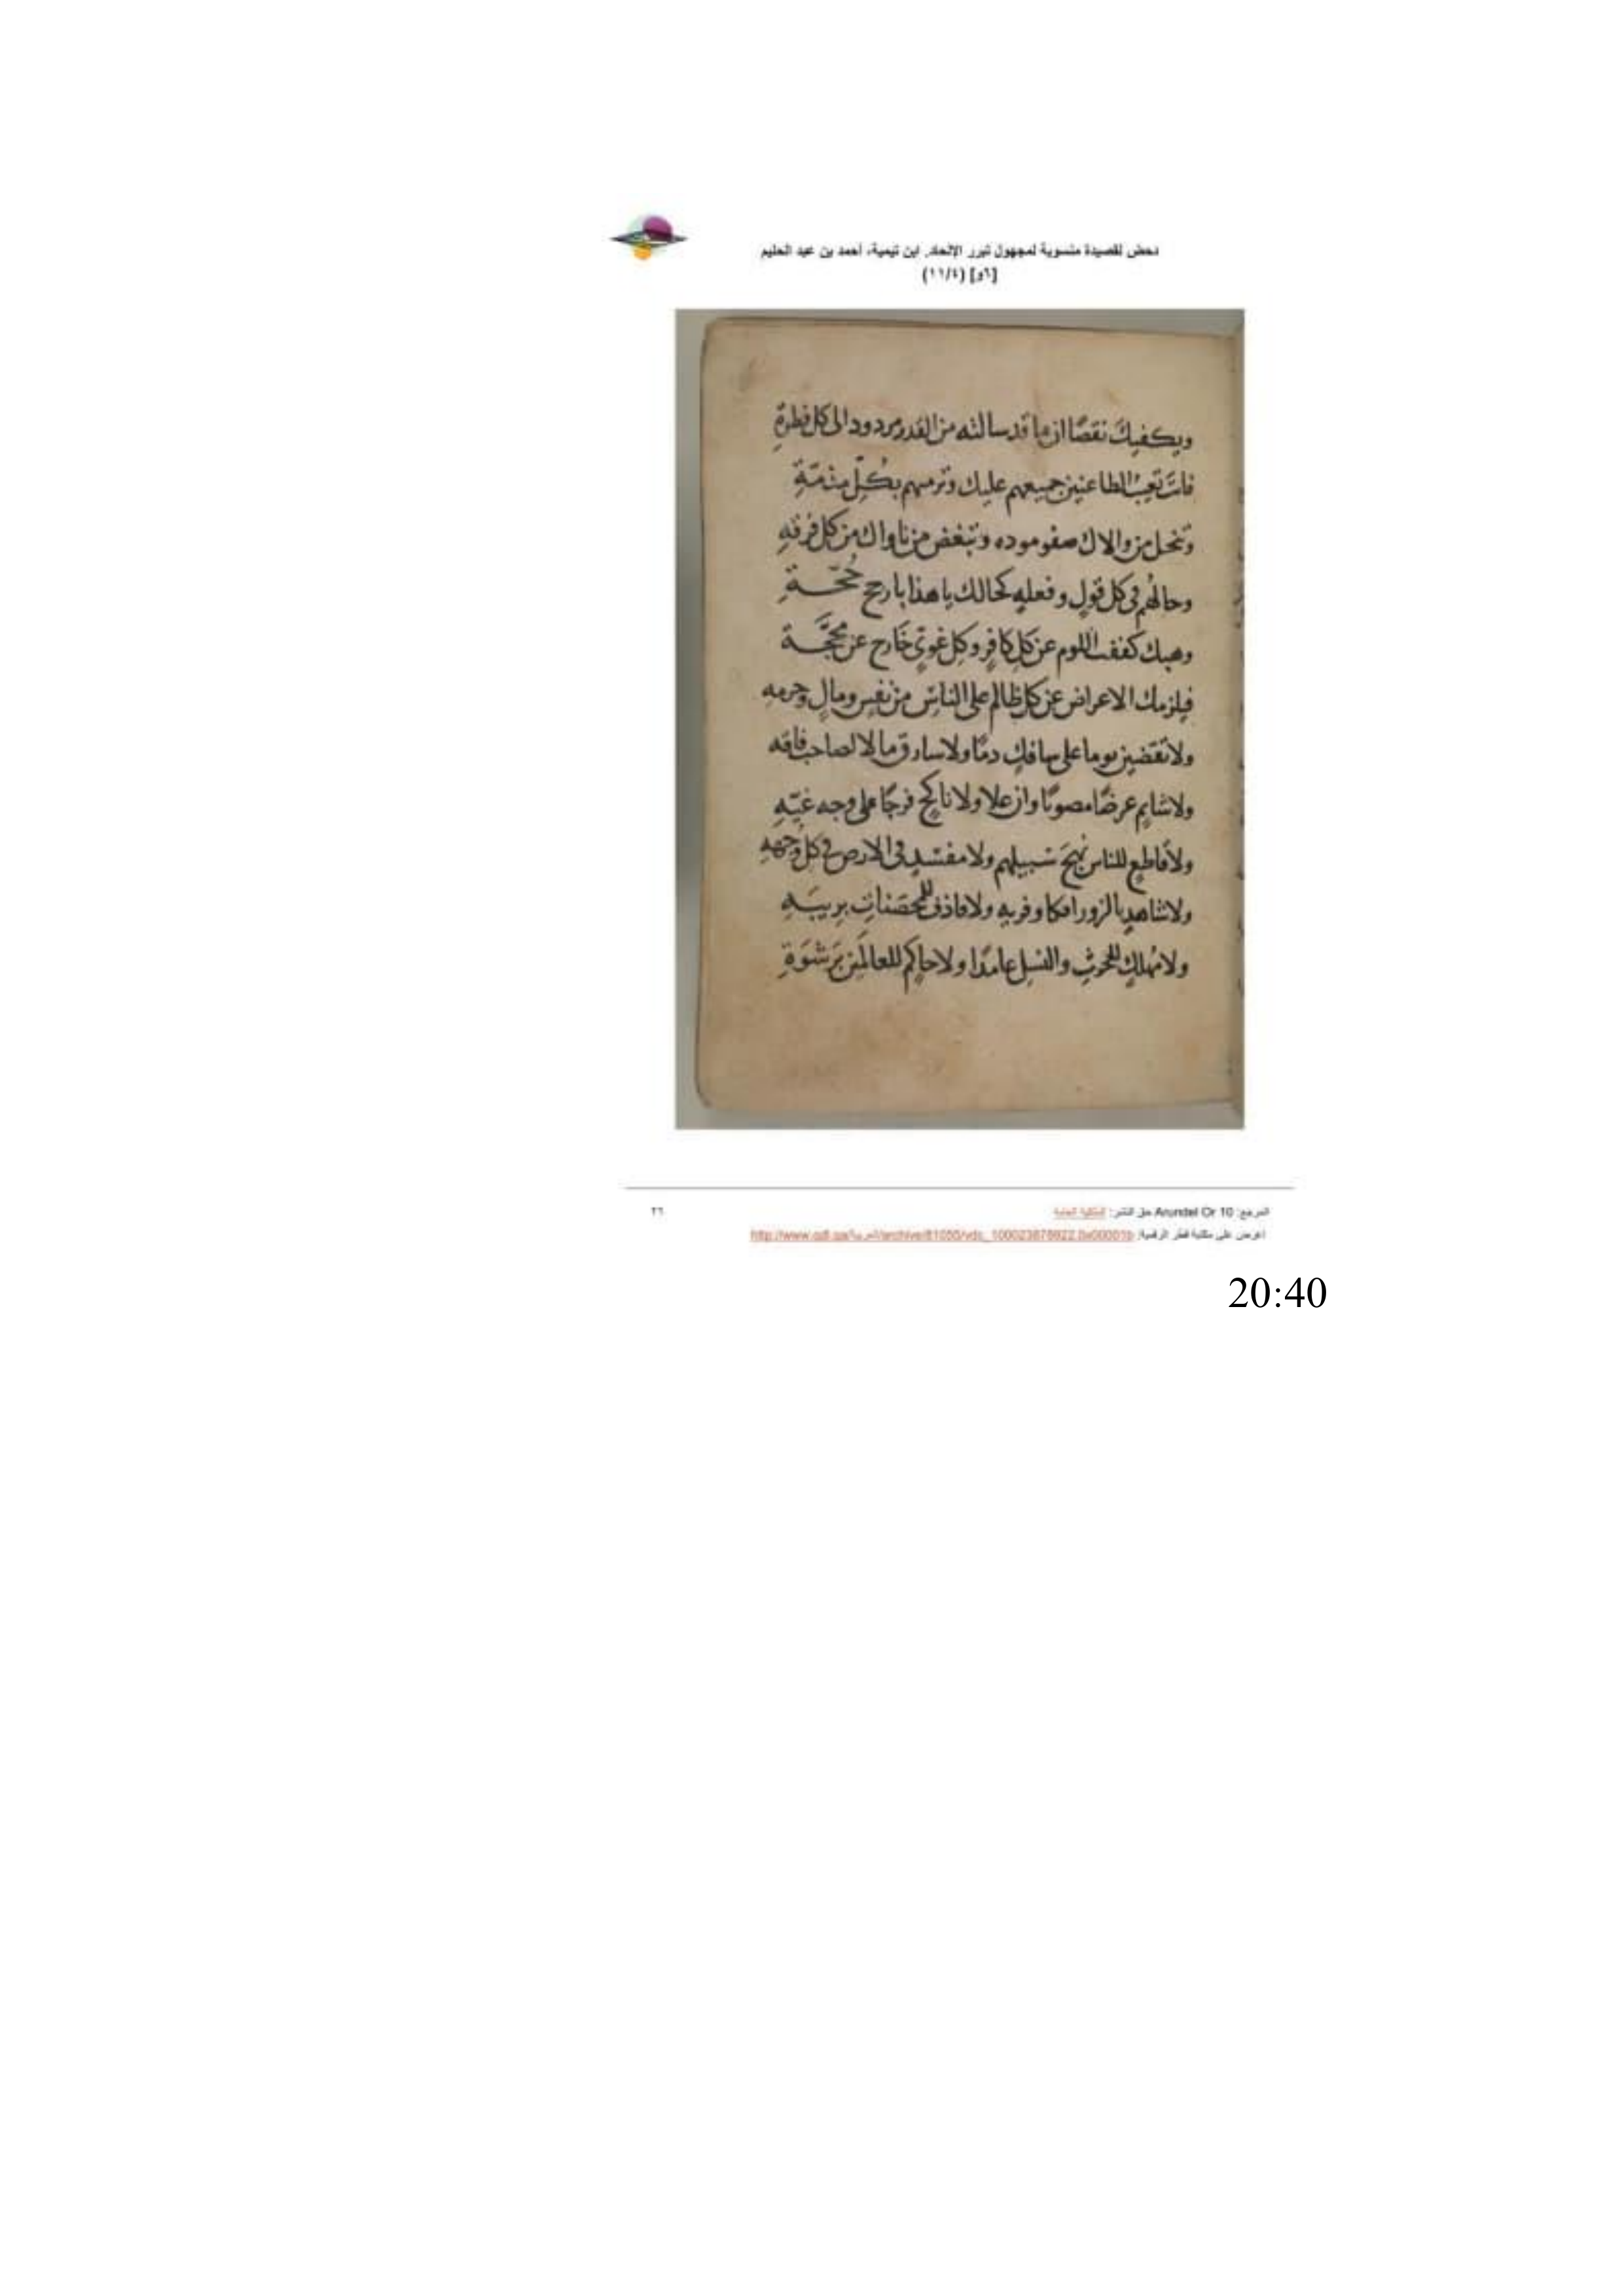 دحض لقصيدة منسوبة لمجهول تبرر الإلحاد. ابن تيمية، أحمد بن عبد الحليم
[٦و] (١١/٤)
ويكفيك نقصًا ان ما قد سالته من العذر مردود الى كل فطرةٍ
فانت تعيب الطاعنين جميعهم عليك وترميهم بكلِّ مذمّةِ
وتنحل من والاك صفو موده وتبغض من ناواك من كل فرقهِ
وحالُهُم في كل قولٍ وفعلهِ كحالك يا هذا بارجح حُجّــةِ
وهبك كففت اللوم عن كل كافرٍ وكل غويٍّ خارج عن محجَّــة
فيلزمك الاعراض عن كل ظالم على الناس من نفس ومالٍ وحرمهِ
ولا تغضبن يوما على سافكٍ دمًا ولا سارق مالا لصاحب فاقه
ولا شاتم عرضًا مصونًا وان علا ولا ناكح فرجًا على وجه غيّهِ
ولا قاطع للناس نهجَ سبيلهم ولا مفسدٍ في الارض في كل وجههِ
ولا شاهدٍ بالزور افكا وفريه ولا قاذف للمحصَنات بريبَــهِ
ولا مُهلكٍ للحرث والنسل عامدًا ولا حاكم للعالمَين برَشوَةِ
المرجع: Arundel Or 10 حق النشر: الملكية العامة
٢٦
اعرض على مكتبة قطر الرقمية:
20:40